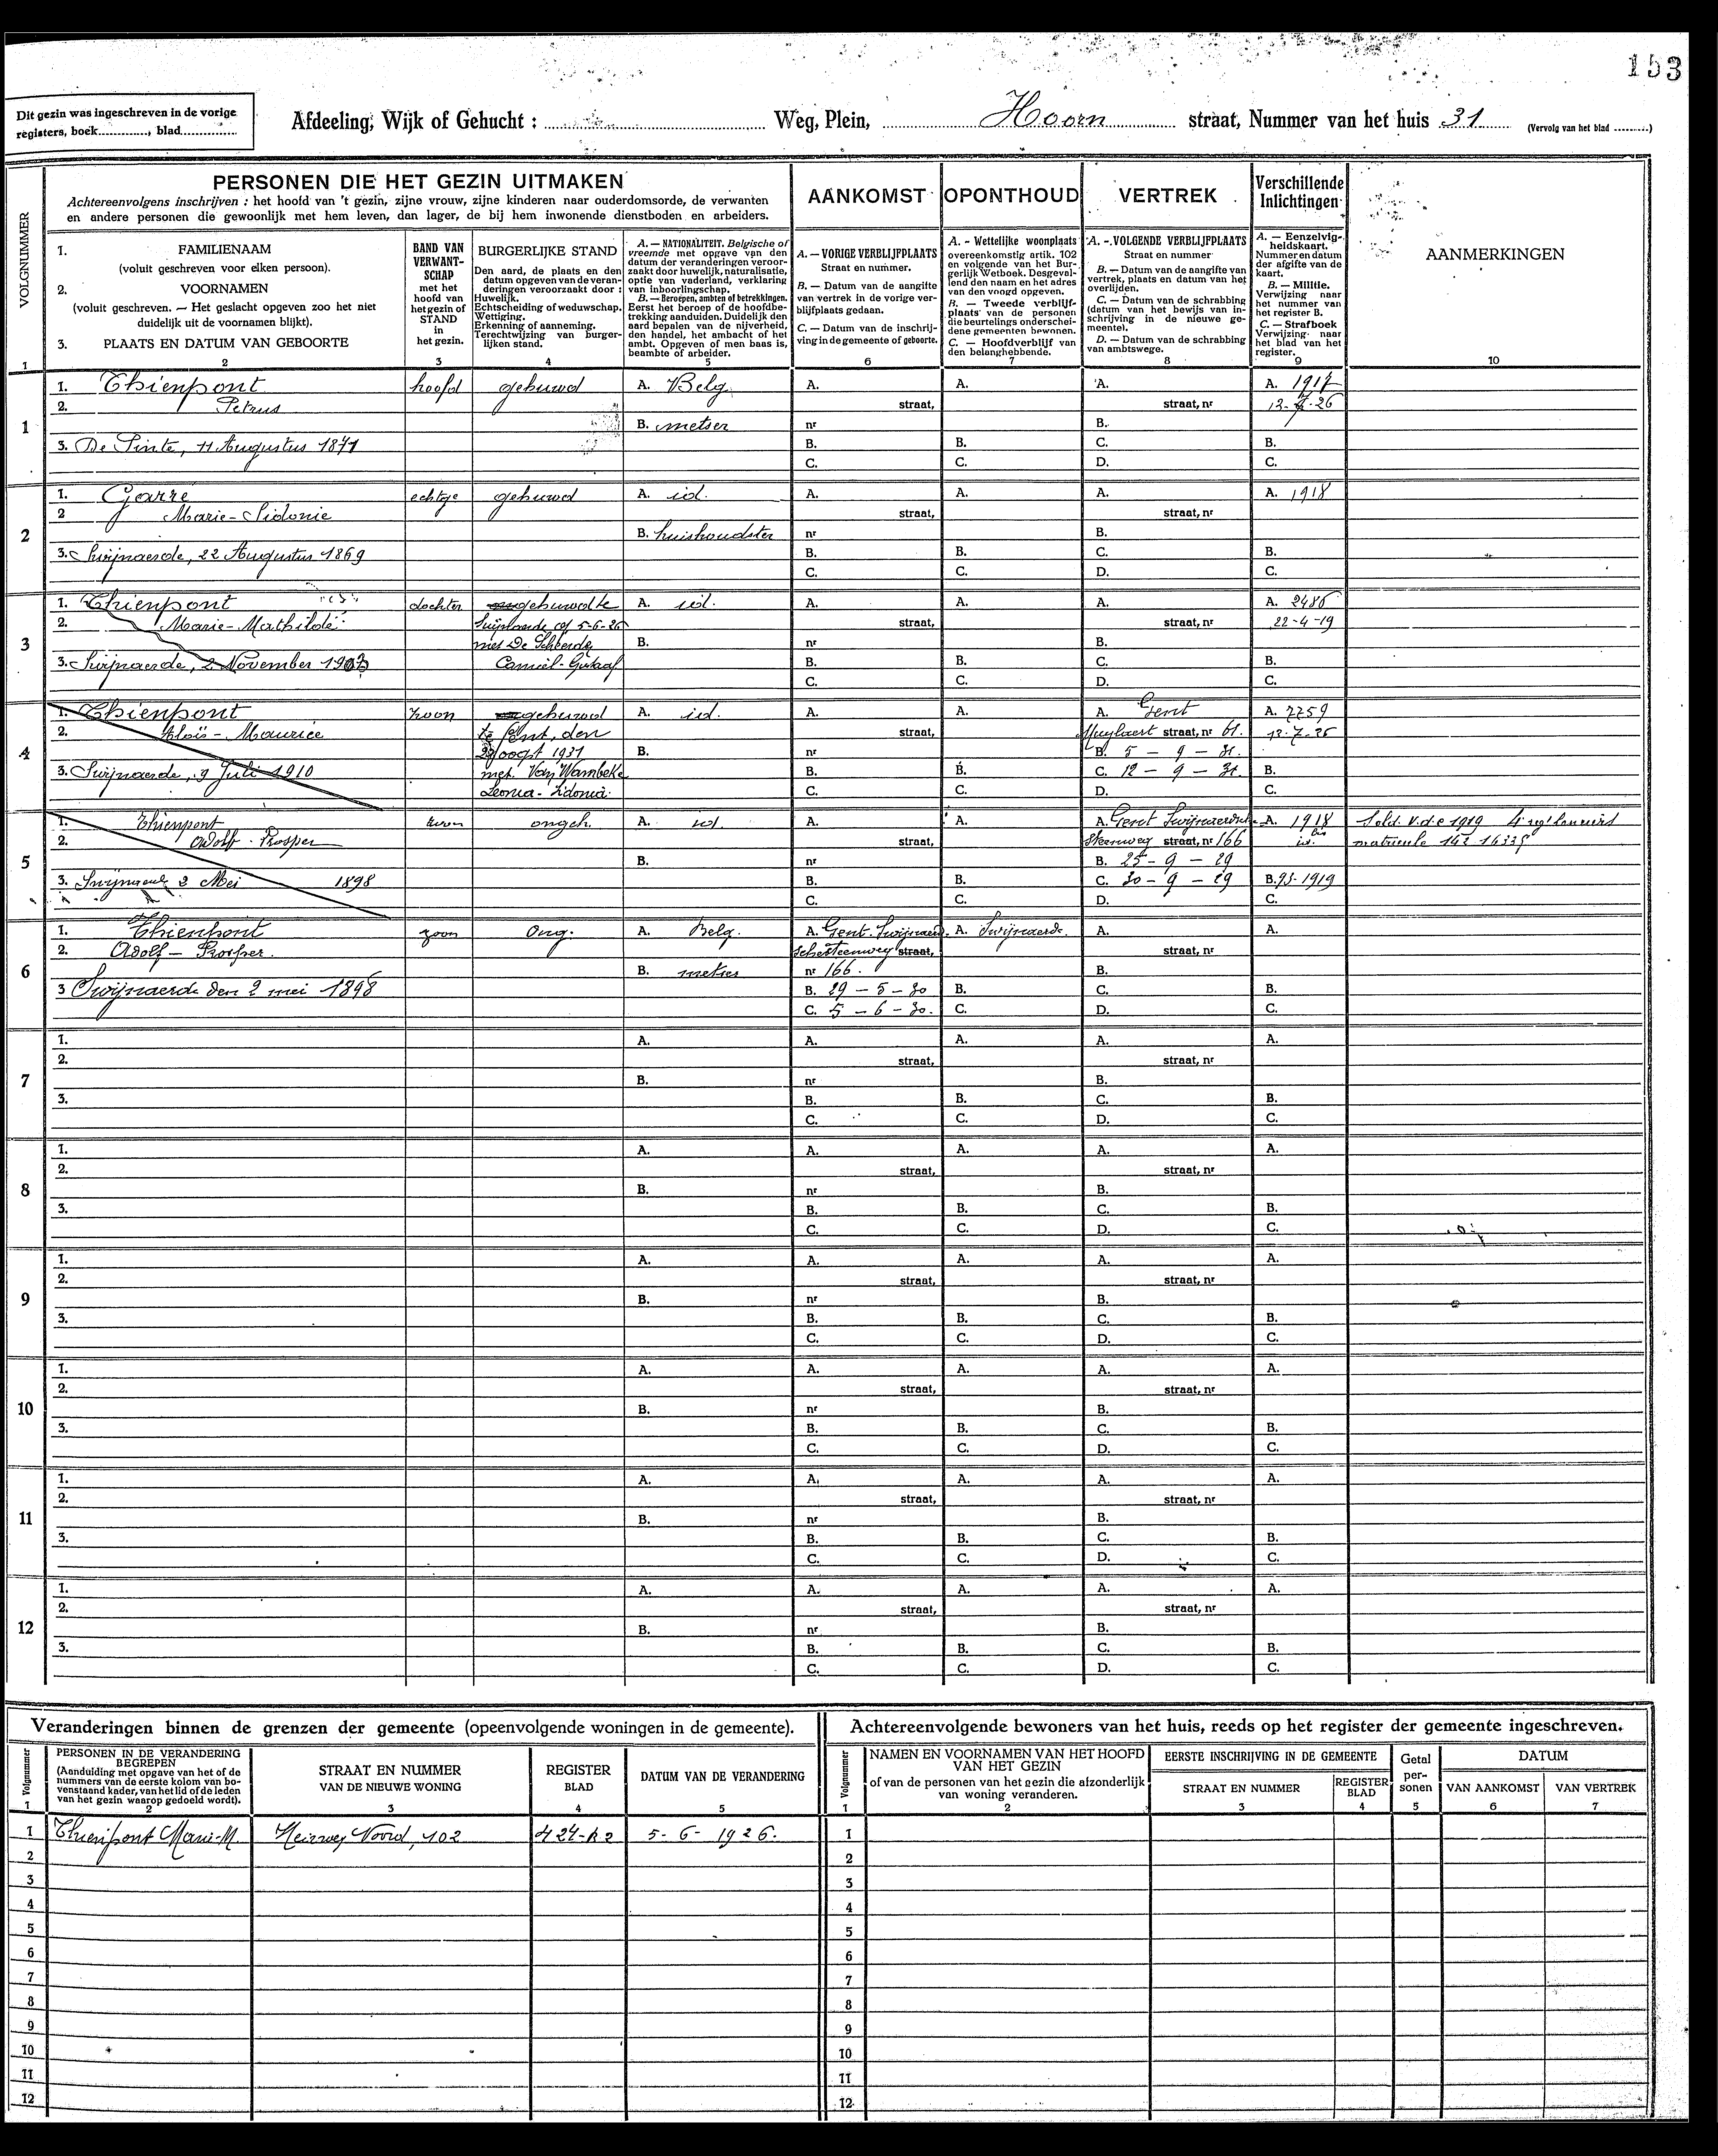 153
Dit gezin was ingeschreven in de vorige
registers, boek............, blad............
Afdeeling, Wijk of Gehucht : ............ Weg, Plein, Hoorn straat, Nummer van het huis 31 (Vervolg van het blad .........)
VOLGNUMMER
PERSONEN DIE HET GEZIN UITMAKEN
Achtereenvolgens inschrijven : het hoofd van 't gezin, zijne vrouw, zijne kinderen naar ouderdomsorde, de verwanten
en andere personen die gewoonlijk met hem leven, dan lager, de bij hem inwonende dienstboden en arbeiders.
AANKOMST
OPONTHOUD
VERTREK
Verschillende
Inlichtingen
AANMERKINGEN
1. FAMILIENAAM
(voluit geschreven voor elken persoon).
2. VOORNAMEN
(voluit geschreven. — Het geslacht opgeven zoo het niet
duidelijk uit de voornamen blijkt).
3. PLAATS EN DATUM VAN GEBOORTE
BAND VAN
VERWANT-
SCHAP
met het
hoofd van
het gezin of
STAND
in
het gezin.
BURGERLIJKE STAND
Den aard, de plaats en den
datum opgeven van de veran-
deringen veroorzaakt door :
Huwelijk.
Echtscheiding of weduwschap.
Wettiging.
Erkenning of aanneming.
Terechtwijzing van burger-
lijken stand.
A. — NATIONALITEIT. Belgische of
vreemde met opgave van den
datum der veranderingen veroor-
zaakt door huwelijk, naturalisatie,
optie van vaderland, verklaring
van inboorlingschap.
B. — Beroepen, ambten of betrekkingen.
Eerst het beroep of de hoofdbe-
trekking aanduiden. Duidelijk den
aard bepalen van de nijverheid,
den handel, het ambacht of het
ambt. Opgeven of men baas is,
beambte of arbeider.
A. — VORIGE VERBLIJFPLAATS
Straat en nummer.
B. — Datum van de aangifte
van vertrek in de vorige ver-
blijfplaats gedaan.
C. — Datum van de inschrij-
ving in de gemeente of geboorte.
A. - Wettelijke woonplaats
overeenkomstig artik. 102
en volgende van het Bur-
gerlijk Wetboek. Desgeval-
lend den naam en het adres
van den voogd opgeven.
B. — Tweede verblijf-
plaats van de personen
die beurtelings onderschei-
dene gemeenten bewonen.
C. — Hoofdverblijf van
den belanghebbende.
A. - VOLGENDE VERBLIJFPLAATS
Straat en nummer
B. — Datum van de aangifte van
vertrek, plaats en datum van het
overlijden.
C. — Datum van de schrabbing
(datum van het bewijs van in-
schrijving in de nieuwe ge-
meente).
D. — Datum van de schrabbing
van ambtswege.
A. — Eenzelvig-
heidskaart.
Nummer en datum
der afgifte van de
kaart.
B. — Militie.
Verwijzing naar
het nummer van
het register B.
C. — Strafboek
Verwijzing naar
het blad van het
register.
1 2 3 4 5 6 7 8 9 10
1
1. Thienpont hoofd gehuwd A. Belg A. A. A. A. 1917
2. Petrus straat, straat, nr
B. metser nr B.
3. De Pinte, 11 Augustus 1871 B. B. C. B.
C. C. D. C.
2
1. Garré echtge gehuwd A. id. A. A. A. A. 1918
2 Marie-Sidonie straat, straat, nr
B. huishoudster nr B.
3. Swijnaerde, 22 Augustus 1869 B. B. C. B.
C. C. D. C.
3
1. Thienpont dochter gehuwd A. id. A. A. A. A. 2486
2. Marie-Mathilde Swijnaerde 5-6-26 straat, straat, nr 22-4-19
met De B. nr B.
3. Swijnaerde, 2 November Camiel-Gustaaf B. B. C. B.
C. C. D. C.
4
1. Thienpont zoon gehuwd A. id. A. A. A. Gent A. 7759
2. Aloïs-Maurice te Gent, den straat, straat, nr 61.
oogst 1931 B. nr B. 5 - 9 - 31.
3. Swijnaerde, 9 Juli 1910 met Van Wambeke B. B. C. 12 - 9 - 31. B.
Leonia-Zidonia C. C. D. C.
5
1. Thienpont zoon ongeh. A. id. A. A. A. Gent A. 1918 bis
2. Adolf-Prosper straat, Steenweg straat, nr 166 id.
B. nr B. 25 - 9 - 29
3. 2 Mei 1898 B. B. C. 30 - 9 - 29 B. 93-1919
C. C. D. C.
Sold. v. d. c 1919
matricule
6
1. Thienpont zoon Ong. A. Belg. A. Gent. A. Swijnaerde. A. A.
2. Adolf - Prosper. straat, straat, nr
B. metser nr 166. B.
3 Swijnaerde den 2 mei 1898 B. 29 - 5 - 30 B. C. B.
C. 5 - 6 - 30. C. D. C.
7
1. A. A. A. A. A.
2. straat, straat, nr
B. nr B.
3. B. B. C. B.
C. C. D. C.
8
1. A. A. A. A. A.
2. straat, straat, nr
B. nr B.
3. B. B. C. B.
C. C. D. C.
9
1. A. A. A. A. A.
2. straat, straat, nr
B. nr B.
3. B. B. C. B.
C. C. D. C.
10
1. A. A. A. A. A.
2. straat, straat, nr
B. nr B.
3. B. B. C. B.
C. C. D. C.
11
1. A. A. A. A. A.
2. straat, straat, nr
B. nr B.
3. B. B. C. B.
C. C. D. C.
12
1. A. A. A. A. A.
2. straat, straat, nr
B. nr B.
3. B. B. C. B.
C. C. D. C.
Veranderingen binnen de grenzen der gemeente (opeenvolgende woningen in de gemeente).
Volgnummer
PERSONEN IN DE VERANDERING
BEGREPEN
(Aanduiding met opgave van het of de
nummers van de eerste kolom van bo-
venstaand kader, van het lid of de leden
van het gezin waarop gedoeld wordt).
STRAAT EN NUMMER
VAN DE NIEUWE WONING
REGISTER
BLAD
DATUM VAN DE VERANDERING
1 2 3 4 5
1 Thienpont Marie-M. Heirweg Noord, 102 5-6-1926.
2
3
4
5
6
7
8
9
10
11
12
Achtereenvolgende bewoners van het huis, reeds op het register der gemeente ingeschreven.
Volgnummer
NAMEN EN VOORNAMEN VAN HET HOOFD
VAN HET GEZIN
of van de personen van het gezin die afzonderlijk
van woning veranderen.
EERSTE INSCHRIJVING IN DE GEMEENTE
STRAAT EN NUMMER
REGISTER
BLAD
Getal
per-
sonen
DATUM
VAN AANKOMST
VAN VERTREK
1 2 3 4 5 6 7
1
2
3
4
5
6
7
8
9
10
11
12